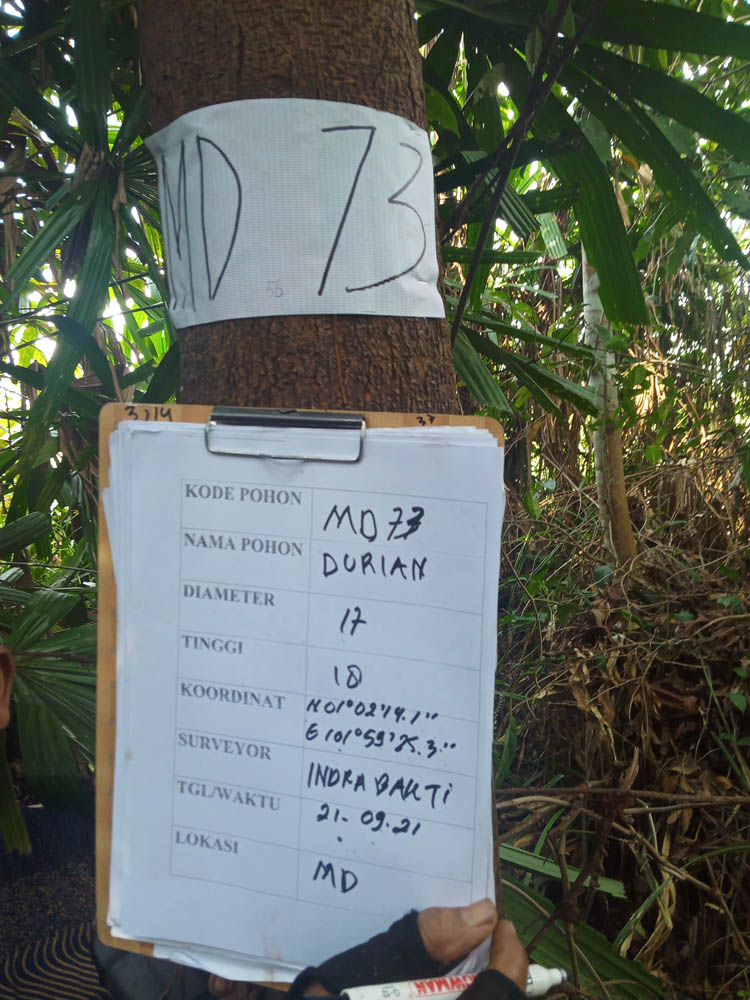 MD 73
56
3,14
37
KODE POHON MD73
NAMA POHON DURIAN
DIAMETER 17
TINGGI 18
KOORDINAT N01°02'14.1"
E101°59'25.3"
SURVEYOR INDRA BAKTI
TGL/WAKTU 21-09-21
LOKASI MD
SNOWMAN